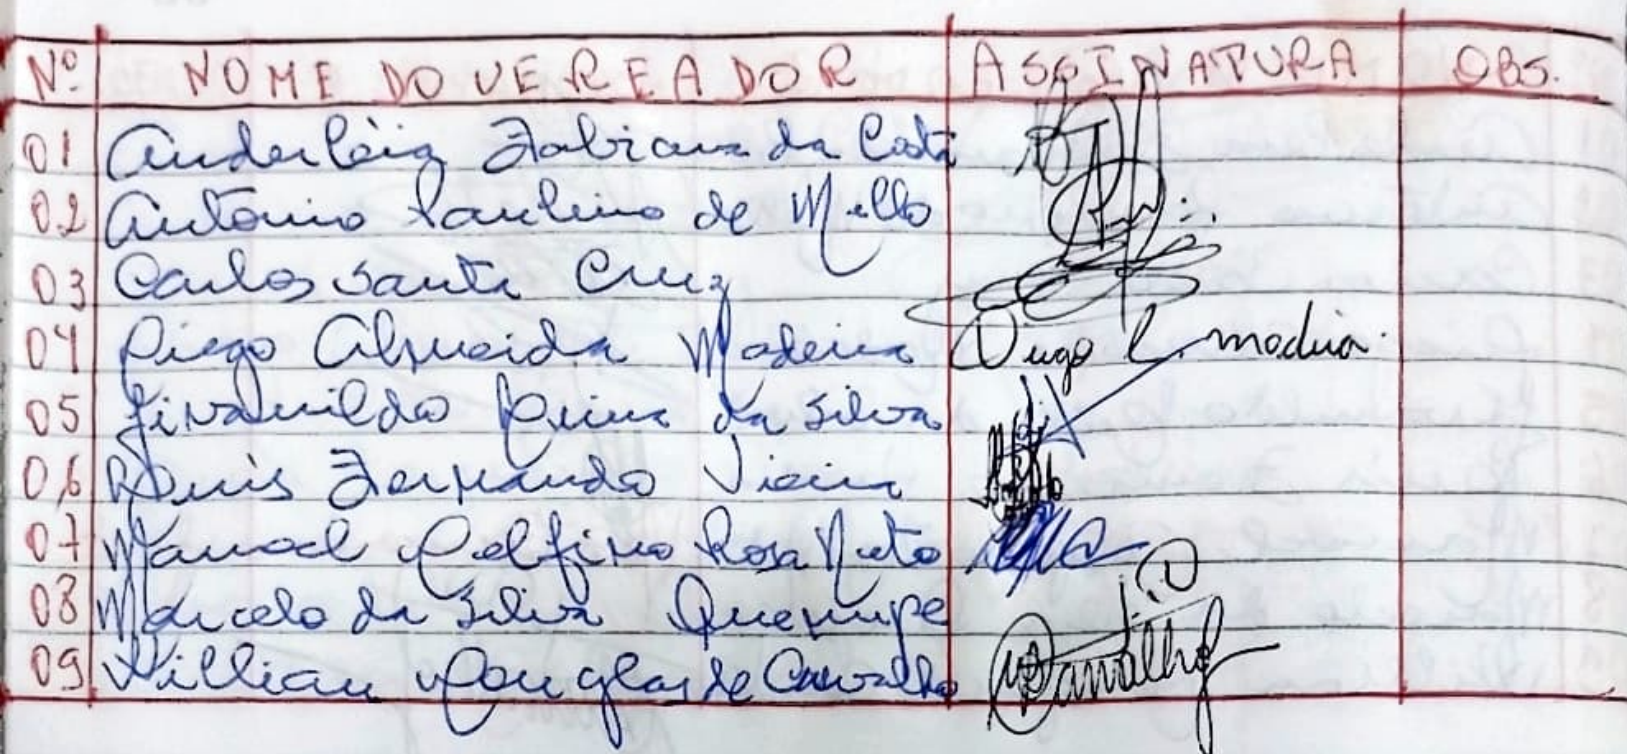 Nº NOME DO VEREADOR ASSINATURA OBS.
01 Anderléia Fabiana da Costa
02 Antônio Paulino de Mello
03 Carlos Santa Cruz
04 Diego Almeida Madeira Diego
05 da Silva
06 Fernando Vieira
07 Manoel Delfino Rosa Neto
08 Marcelo da Silva
09 Willian Douglas de Carvalho Carvalho